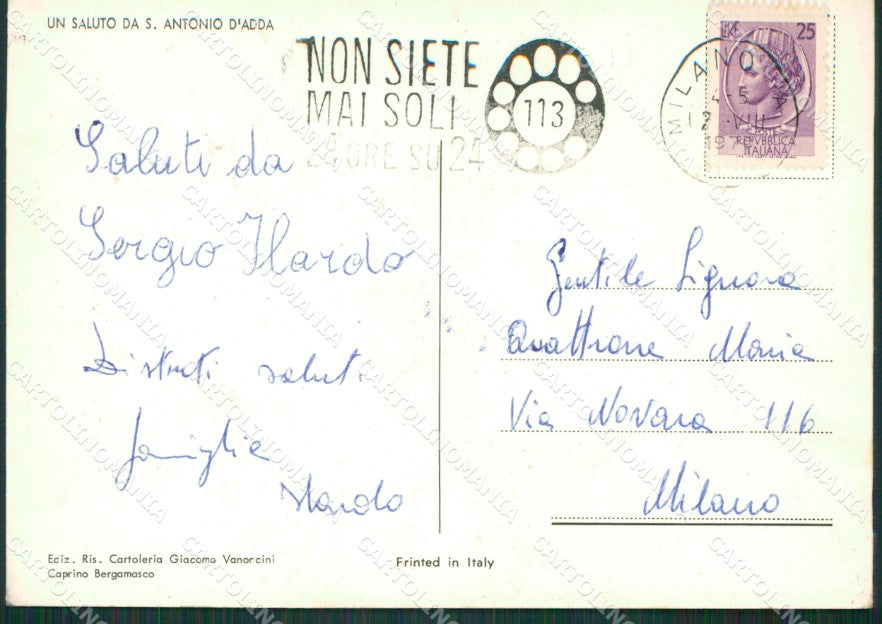 UN SALUTO DA S. ANTONIO D'ADDA
NON SIETE
MAI SOLI
24 ORE SU 24
113
MILANO
LIRE 25
REPVBBLICA
ITALIANA
Saluti da
Sergio Nardo
Distinti saluti
famiglia
Nardo
Gentile Signora
Quattrone Maria
Via Novara 116
Milano
Ediz. Ris. Cartoleria Giacomo Vanoncini
Caprino Bergamasco
Printed in Italy
CARTOLINOMANIA